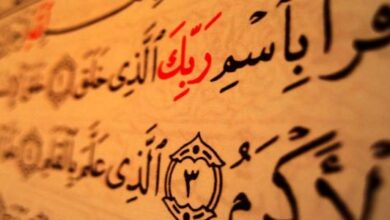 قْرَأْ بِٱسْمِ رَبِّكَ ٱلَّذِى خَلَقَ ١
ٱلْأَكْرَمُ ٣ ٱلَّذِى عَلَّمَ بِٱلْقَلَمِ